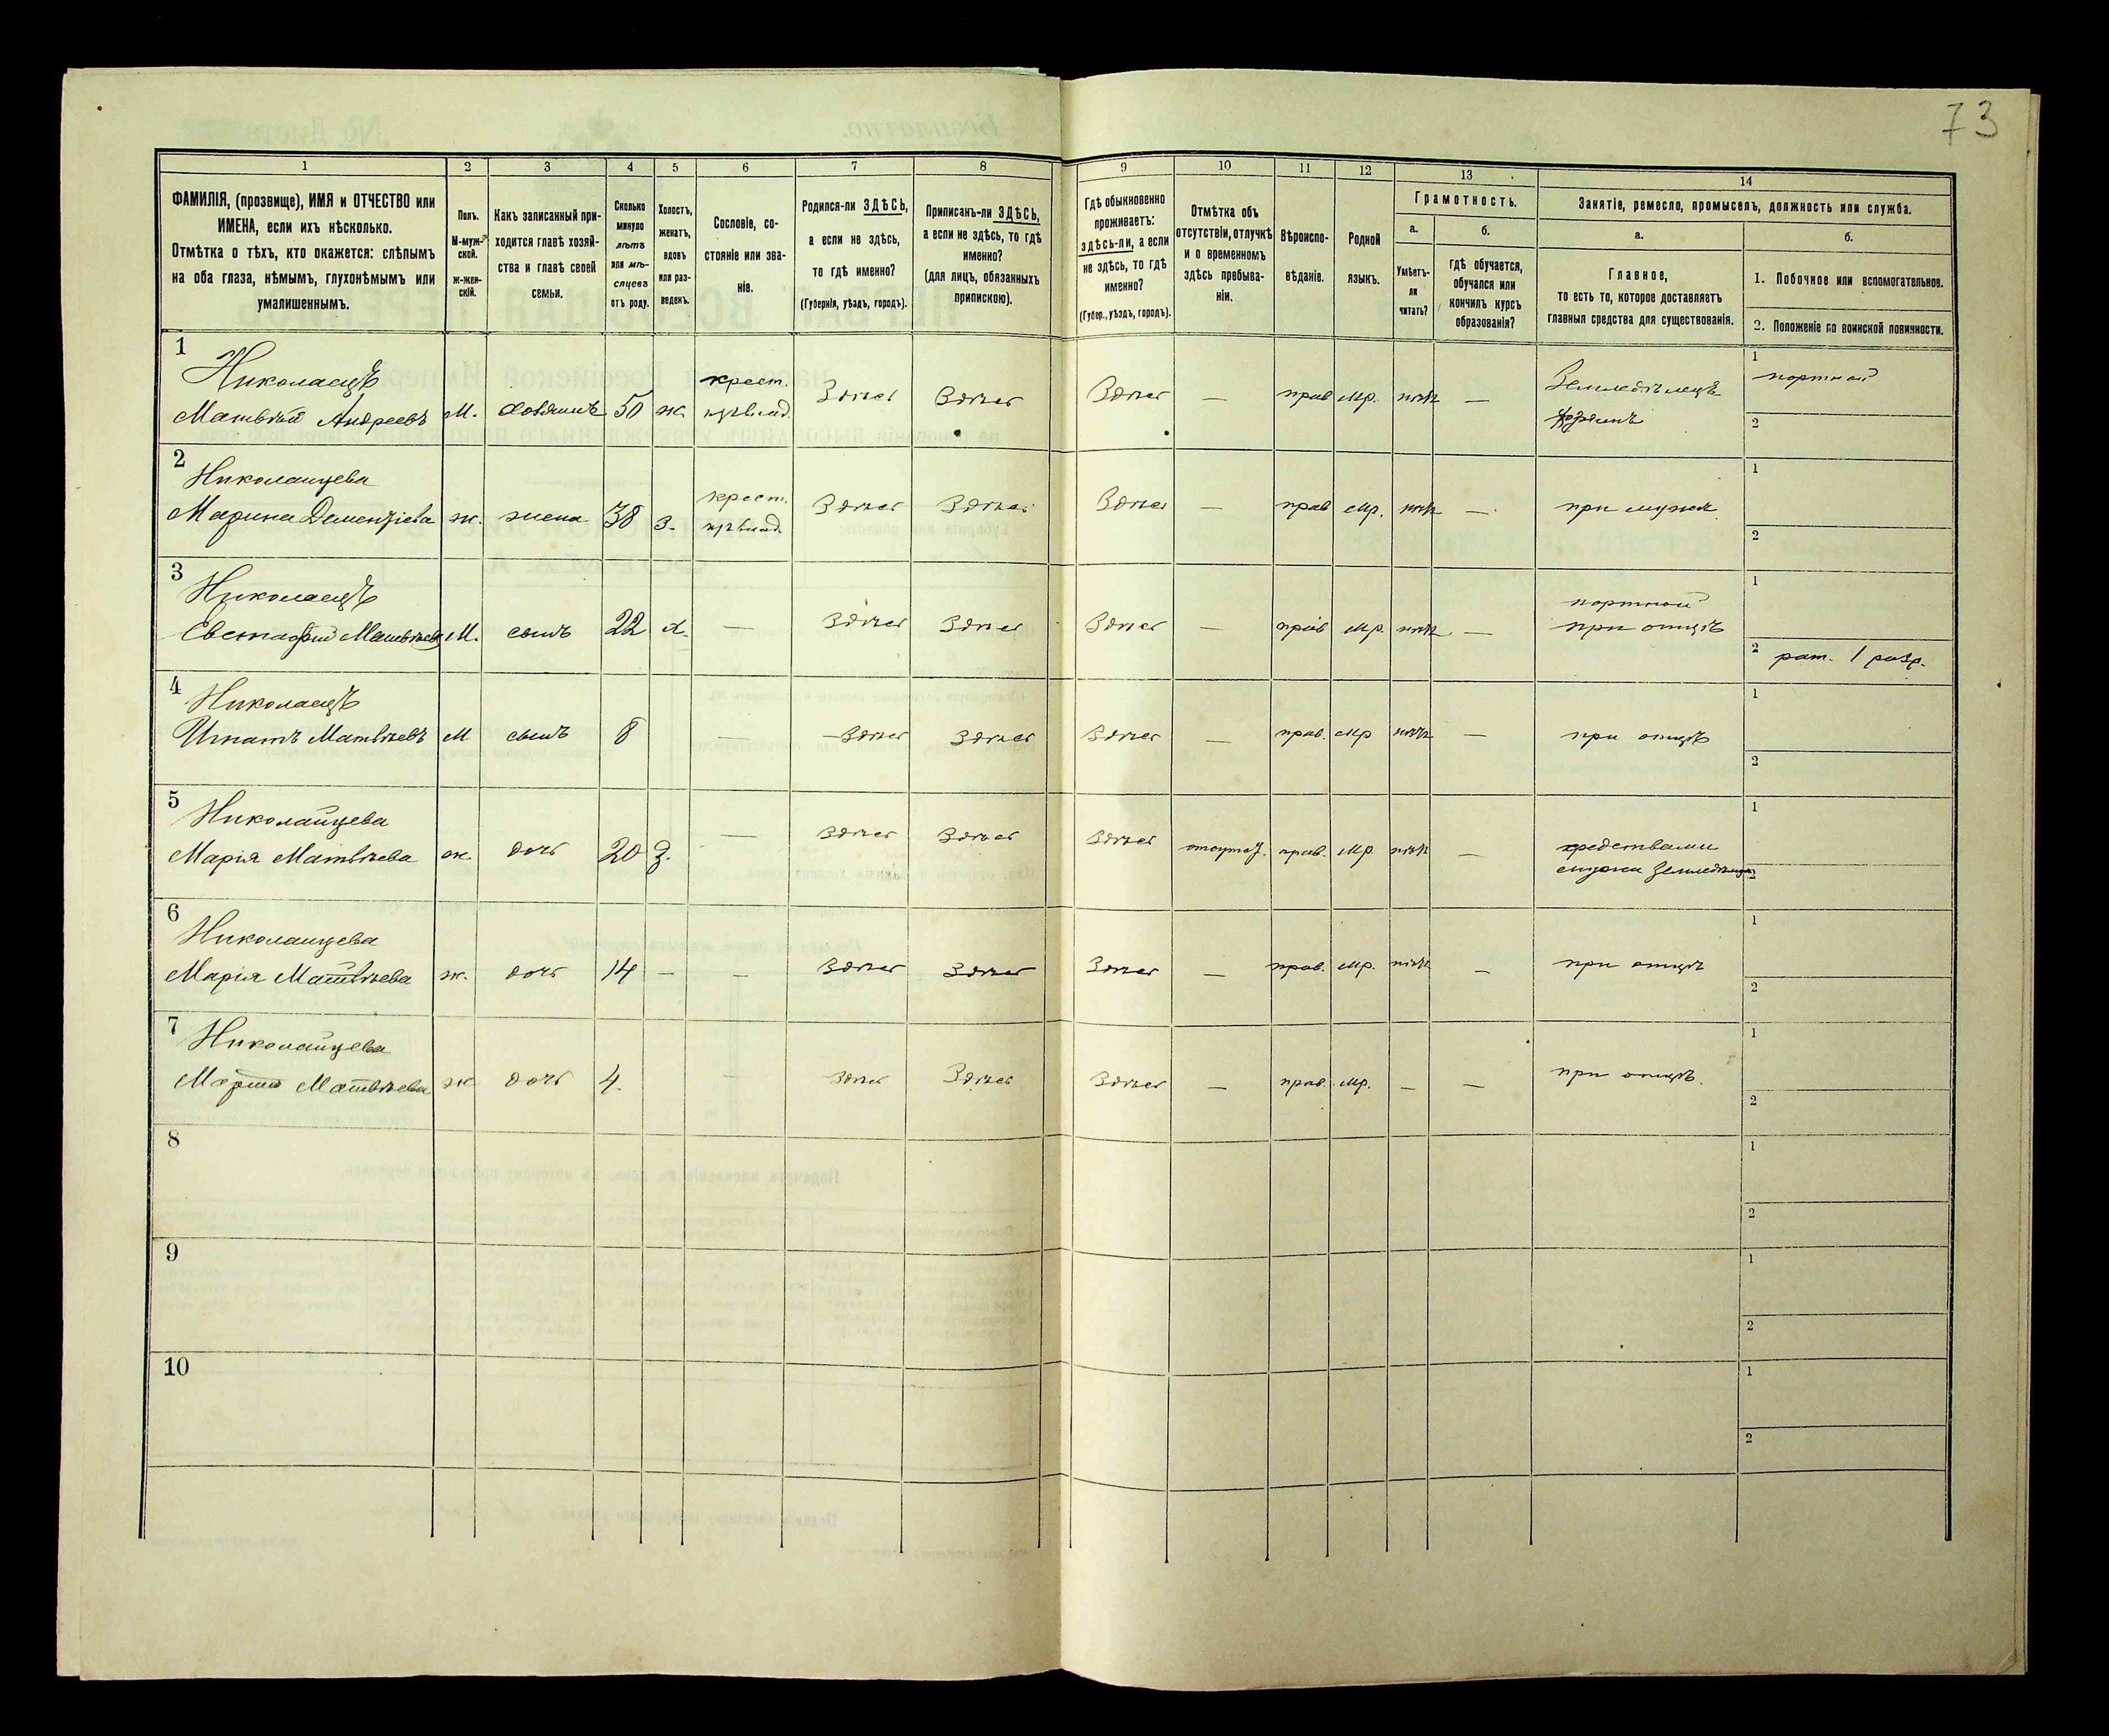 73
1 2 3 4 5 6 7 8 9 10 11 12 13 14
ФАМИЛІЯ, (прозвище), ИМЯ и ОТЧЕСТВО или
ИМЕНА, если ихъ нѣсколько.
Отмѣтка о тѣхъ, кто окажется: слѣпымъ
на оба глаза, нѣмымъ, глухонѣмымъ или
умалишеннымъ.
Полъ.
М-муж-
ской.
ж-жен-
скій.
Какъ записанный при-
ходится главѣ хозяй-
ства и главѣ своей
семьи.
Сколько
минуло
лѣтъ
или мѣ-
сяцевъ
отъ роду.
Холостъ,
женатъ,
вдовъ
или раз-
веденъ.
Сословіе, со-
стояніе или зва-
ніе.
Родился-ли ЗДѢСЬ,
а если не здѣсь,
то гдѣ именно?
(Губернія, уѣздъ, городъ).
Приписанъ-ли ЗДѢСЬ,
а если не здѣсь, то гдѣ
именно?
(для лицъ, обязанныхъ
припискою).
Гдѣ обыкновенно
проживаетъ:
здѣсь-ли, а если
не здѣсь, то гдѣ
именно?
(Губер., уѣздъ, городъ).
Отмѣтка объ
отсутствіи, отлучкѣ
и о временномъ
здѣсь пребыва-
ніи.
Вѣроиспо-
вѣданіе.
Родной
языкъ.
Грамотность.
а.
Умѣетъ-
ли
читать?
б.
гдѣ обучается,
обучался или
кончилъ курсъ
образованія?
Занятіе, ремесло, промыселъ, должность или служба.
а.
Главное,
то есть то, которое доставляетъ
главныя средства для существованія.
б.
1. Побочное или вспомогательное.
2. Положеніе по воинской повинности.
1 Николаецъ крест. Земледѣлецъ 1 портной
Матвѣй Андреевъ М. хозяинъ 50 ж. Здѣсь Здѣсь Здѣсь — прав мр. нѣтъ — 2
2 Николаицева крест. 1
Марина Дементіева ж. жена 38 з. Здѣсь Здѣсь Здѣсь — прав мр. нѣтъ — при мужѣ 2
3 Николаецъ портной 1
Евстафій Матвѣевъ М. сынъ 22 х. — Здѣсь Здѣсь Здѣсь — прав мр. нѣтъ — при отцѣ 2 рат. 1 разр.
4 Николаецъ 1
Игнатъ Матвѣевъ М сынъ 8 — Здѣсь Здѣсь Здѣсь — прав. мр нѣтъ — при отцѣ 2
5 Николайцева 1
Марія Матвѣева ж. дочь 20 з. — Здѣсь Здѣсь Здѣсь прав. мр нѣтъ — средствами
мужа 2
6 Николаицева 1
Марія Матвѣева ж. дочь 14 — — Здѣсь Здѣсь Здѣсь — прав. мр. нѣтъ — при отцѣ 2
7 Николайцева 1
Матвѣева ж дочь 4. — Здѣсь Здѣсь Здѣсь — прав. мр. — — при отцѣ. 2
8 1
2
9 1
2
10 1
2